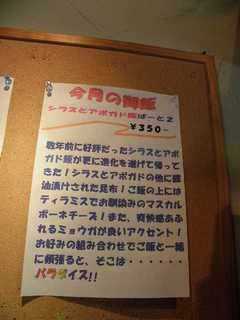 今月の御飯
シラスとアボガド飯ぱーと2
¥350-
数年前に好評だったシラスとアボ
ガド飯が更に進化を遂げて帰って
きた！シラスとアボガドの他に醤
油漬けされた昆布！ご飯の上には
ティラミスでお馴染みのマスカル
ポーネチーズ！また、爽快感あふ
れるミョウガが良いアクセント！
お好みの組み合わせでご飯と一緒
に頬張ると、そこは・・・・・・
パラダイス!!